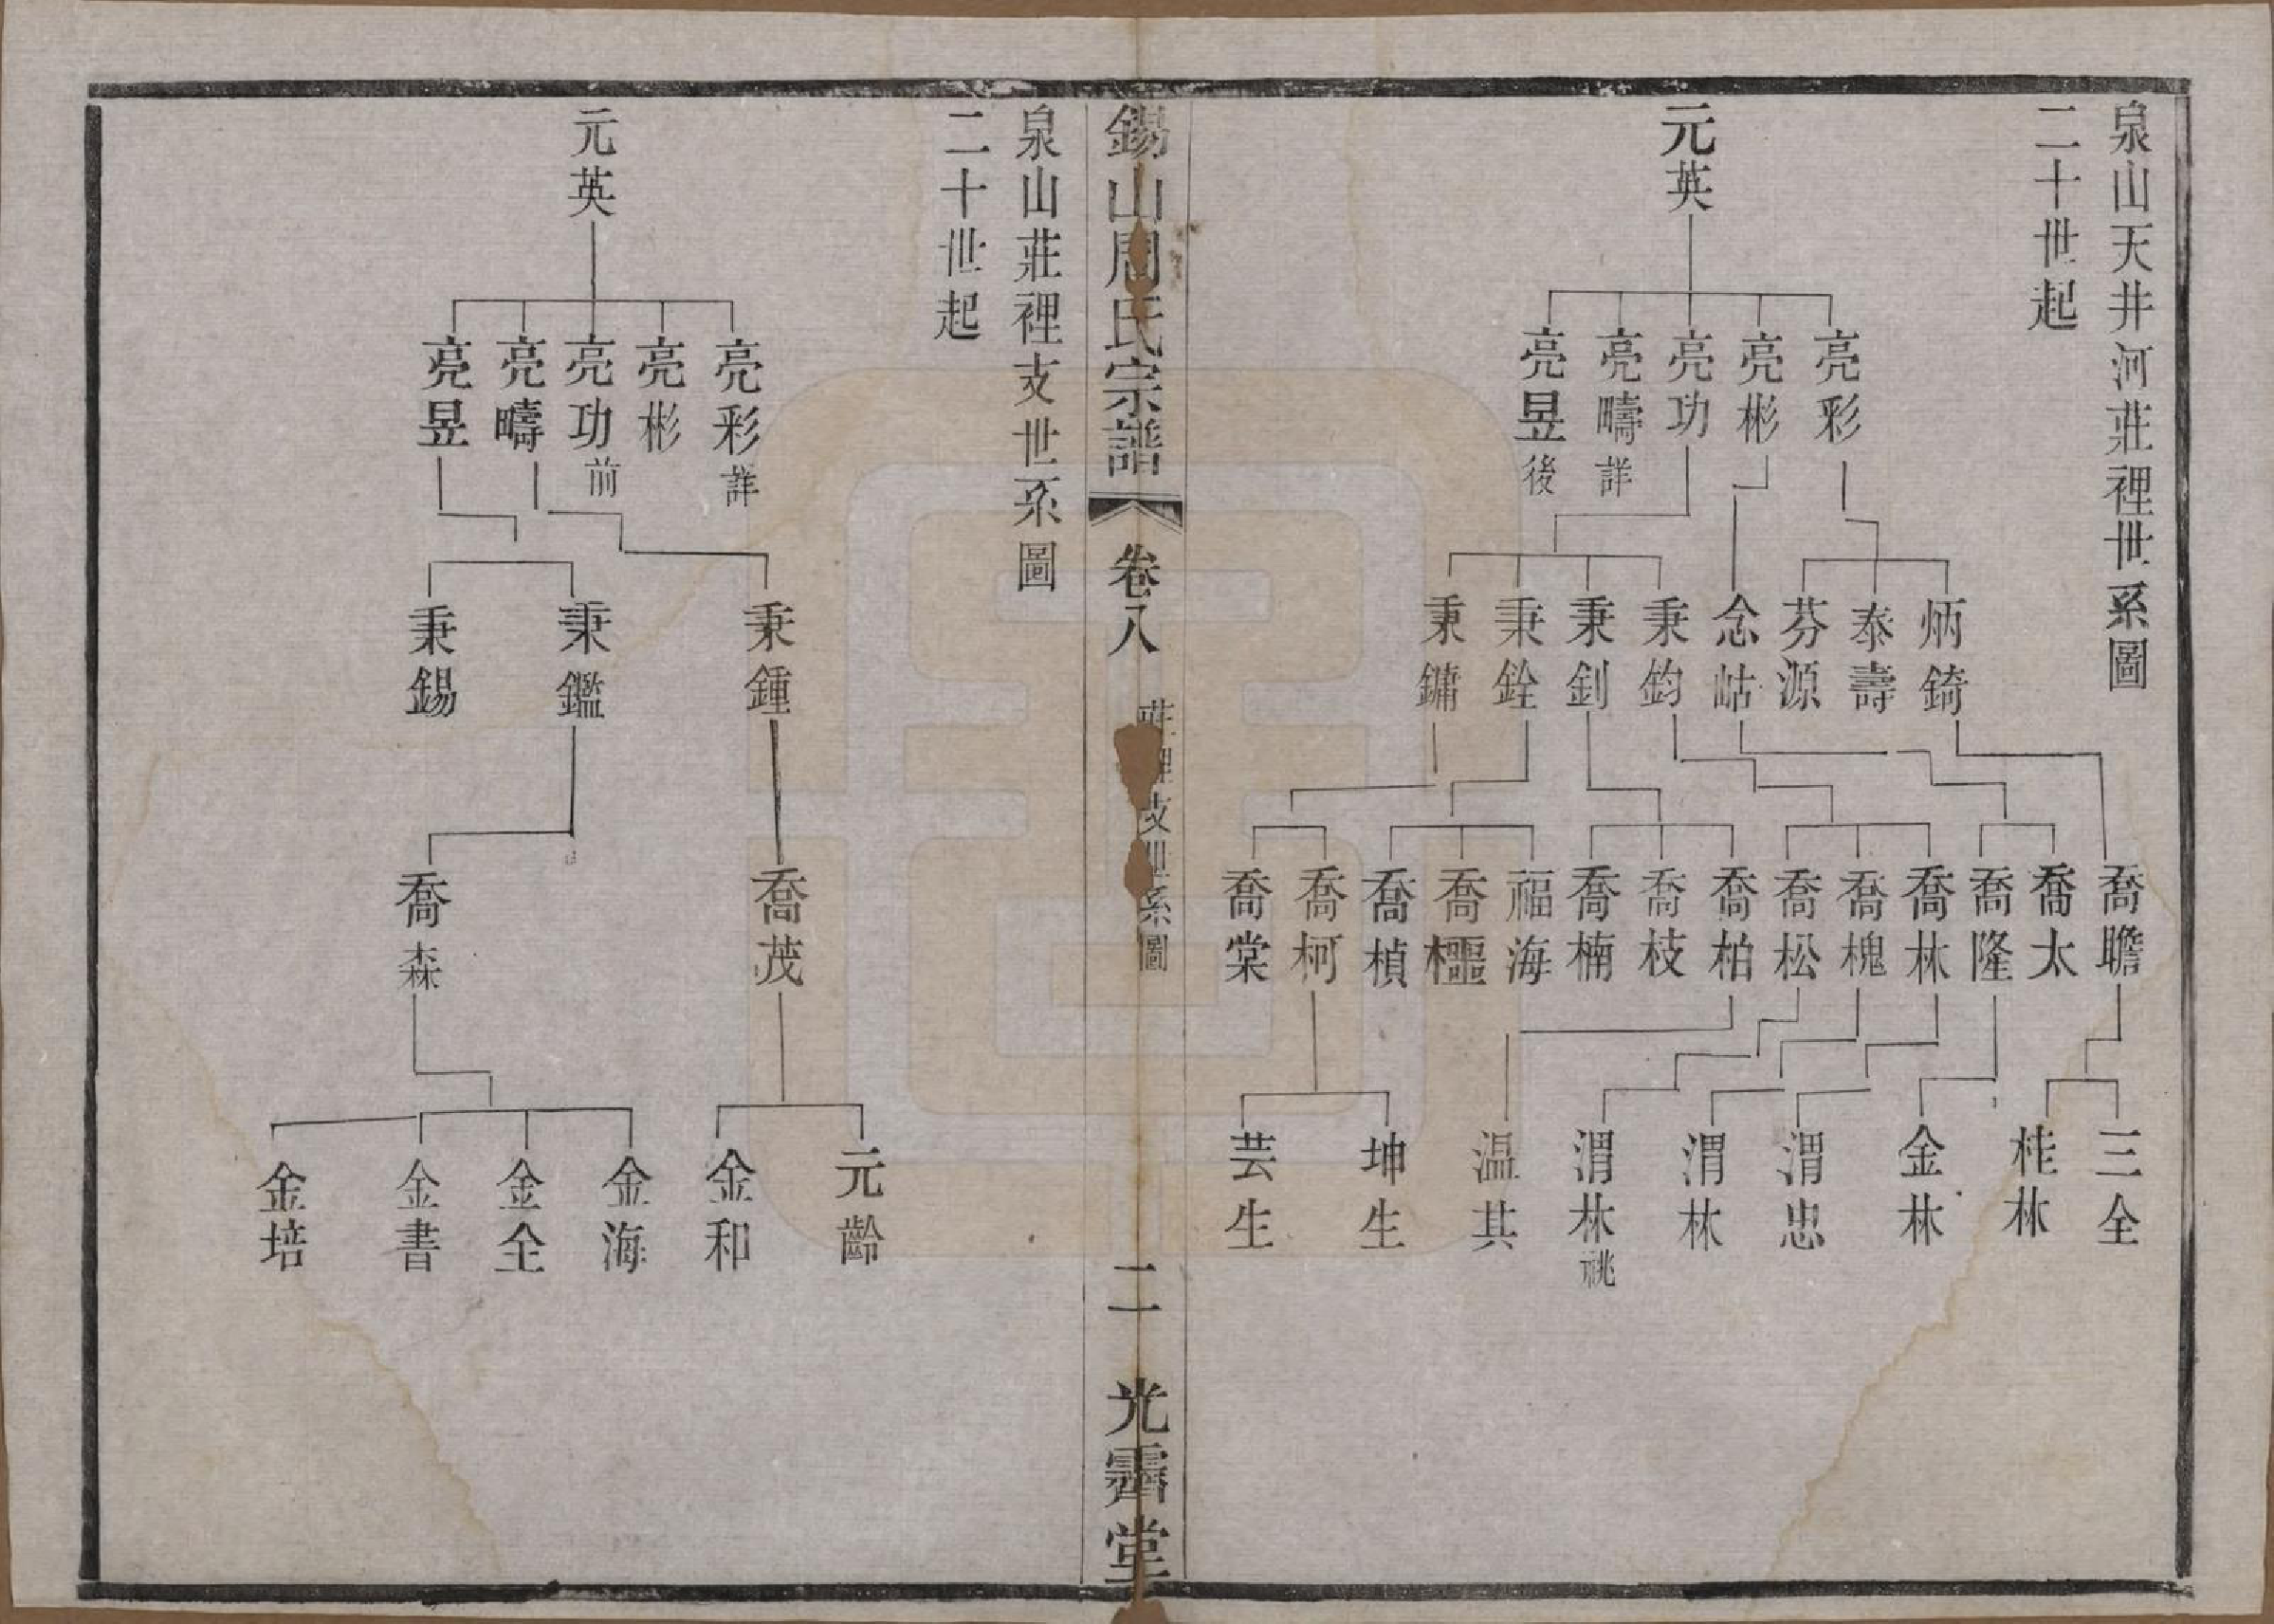 泉山天井河莊裡世系圖
二十世起
元英
亮彩
亮彬
亮功
亮疇詳
亮昱後
炳錡
泰壽
芬源
念岵
秉鈞
秉釗
秉銓
秉鏞
喬瞻
喬太
喬隆
喬林
喬槐
喬松
喬柏
喬枝
喬楠
福海
喬櫮
喬楨
喬柯
喬棠
三全
桂林
金林
渭忠
渭林
渭林祧
温其
坤生
芸生
錫山周氏宗譜
卷八
莊裡支世系圖
二
光霽堂
泉山莊裡支世系圖
二十世起
元英
亮彩詳
亮彬
亮功前
亮疇
亮昱
秉鍾
秉鑑
秉錫
喬茂
喬森
元齡
金和
金海
金全
金書
金培